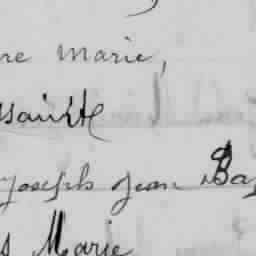 re Marie,
ssainte
Joseph Jean Ba
s Marie